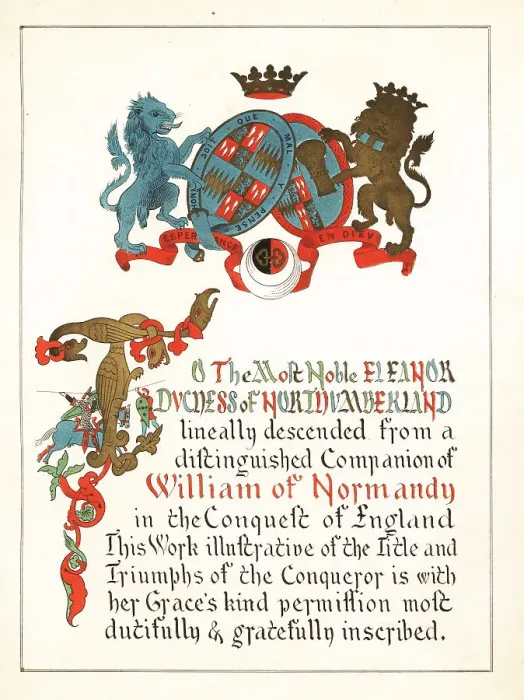 HONI SOIT QUE MAL Y PENSE
ESPERANCE EN DIEV
TO The Moſt Noble ELEANOR
DUCHESS of NORTHUMBERLAND
lineally descended from a
diſtinguished Companion of
William of Normandy
in the Conqueſt of England
This Work illuſtrative of the Title and
Triumphs of the Conqueror is with
her Grace's kind permiſſion moſt
dutifully & gratefully inscribed.